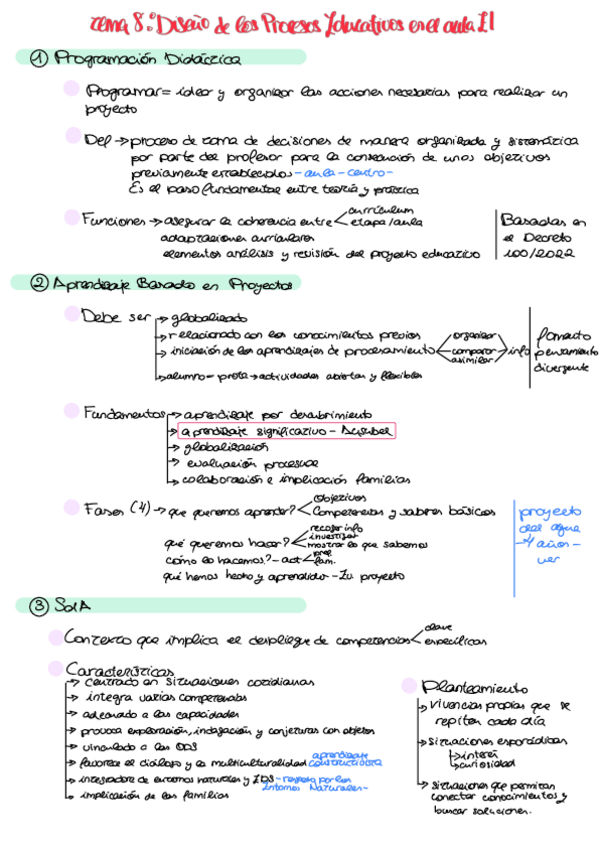 Tema 8: Diseño de los Procesos Educativos en el aula EI
① Programación Didáctica
Programar = idear y organizar las acciones necesarias para realizar un
proyecto
Def → proceso de toma de decisiones de manera organizada y sistemática
por parte del profesor para la consecución de unos objetivos
previamente establecidos - aula - centro -
Es el paso fundamental entre teoría y práctica
Funciones → asegurar la coherencia entre < currículum
etapa/aula
adaptaciones curriculares
elementos análisis y revisión del proyecto educativo
Basadas en
el Decreto
100/2022
② Aprendizaje Basado en Proyectos
Debe ser → globalizado
→ relacionado con los conocimientos previos
→ iniciación de los aprendizajes de procesamiento < organizar
comparar
asimilar > info
→ alumno = prota → actividades abiertas y flexibles
fomento
pensamiento
divergente
Fundamentos → aprendizaje por descubrimiento
→ aprendizaje significativo - Ausubel
→ globalización
→ evaluación procesual
→ colaboración e implicación familias
Fases (4) → que queremos aprender? < objetivos
Competencias y saberes básicos
qué queremos hacer? < recoger info
investigar
mostrar lo que sabemos
cómo lo hacemos? - act < prof
fam.
qué hemos hecho y aprendido - Ev proyecto
proyecto
del agua
- 4 años -
ver
③ SdA
Contexto que implica el despliegue de competencias < clave
específicas
Características
→ centrado en situaciones cotidianas
→ integra varias competencias
→ adecuado a las capacidades
→ provoca exploración, indagación y conjeturas con objetos
→ vinculado a los ODS
→ favorece el diálogo y la multiculturalidad aprendizaje
constructivista
→ integradora de entornos naturales y EDS - respeto por los
Entornos Naturales -
→ implicación de las familias
Planteamiento
→ vivencias propias que se
repiten cada día
→ situaciones esporádicas
→ interés
→ curiosidad
→ situaciones que permitan
conectar conocimientos y
buscar soluciones.